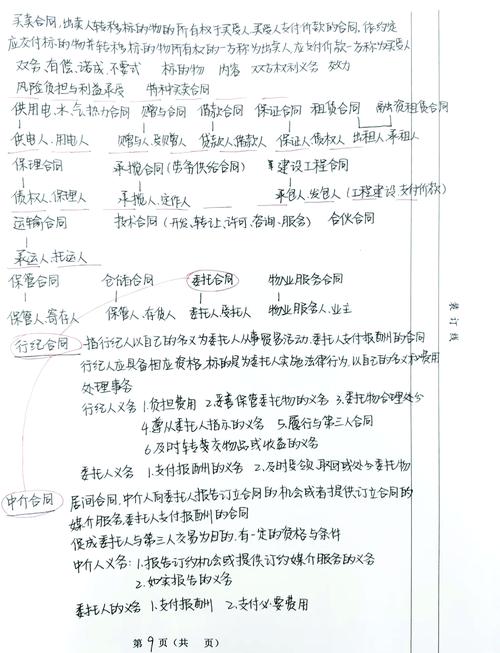 买卖合同,出卖人转移标的物的所有权于买受人,买受人支付价款的合同。依约定
应交付标的物并转移标的物所有权的一方称为出卖人,应支付价款一方称为买受人
双务、有偿、诺成、不要式 标的物 内容 双方权利义务 效力
风险负担与利益承受 特种买卖合同
供用电、水、气、热力合同 赠与合同 借款合同 保证合同 租赁合同 融资租赁合同
供电人、用电人 赠与人、受赠人 贷款人、借款人 保证人、债权人 出租人、承租人
保理合同 承揽合同(劳务供给合同) 建设工程合同
债权人、保理人 承揽人、定作人 承包人、发包人(工程建设、支付价款)
运输合同 技术合同(开发、转让、许可、咨询、服务) 合伙合同
承运人、托运人
保管合同 仓储合同 委托合同 物业服务合同
保管人、寄存人 保管人、存货人 委托人、受托人 物业服务人、业主
行纪合同 指行纪人以自己的名义为委托人从事贸易活动,委托人支付报酬的合同
行纪人应具备相应资格,标的是为委托人实施法律行为,以自己的名义和费用
处理事务
行纪人义务 1.负担费用 2.妥善保管委托物的义务 3.委托物合理处分
4.遵从委托人指示的义务 5.履行与第三人合同
6.及时转交物品或收益的义务
委托人义务 1.支付报酬的义务 2.及时受领、取回或处分委托物
中介合同 居间合同,中介人向委托人报告订立合同的机会或者提供订立合同的
媒介服务,委托人支付报酬的合同
促成委托人与第三人交易为目的,有一定的资格与条件
中介人义务:1.报告订约机会或提供订约媒介服务的义务
2.如实报告的义务
委托人的义务 1.支付报酬 2.支付必要费用
第9页(共 页)
装订线